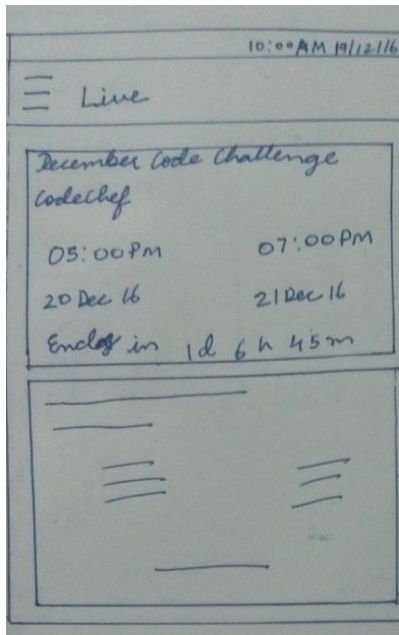 10:00 AM 19/12/16
Live
December Code Challenge
CodeChef
05:00 PM 07:00 PM
20 Dec 16 21 Dec 16
Ends in 1d 6h 45m